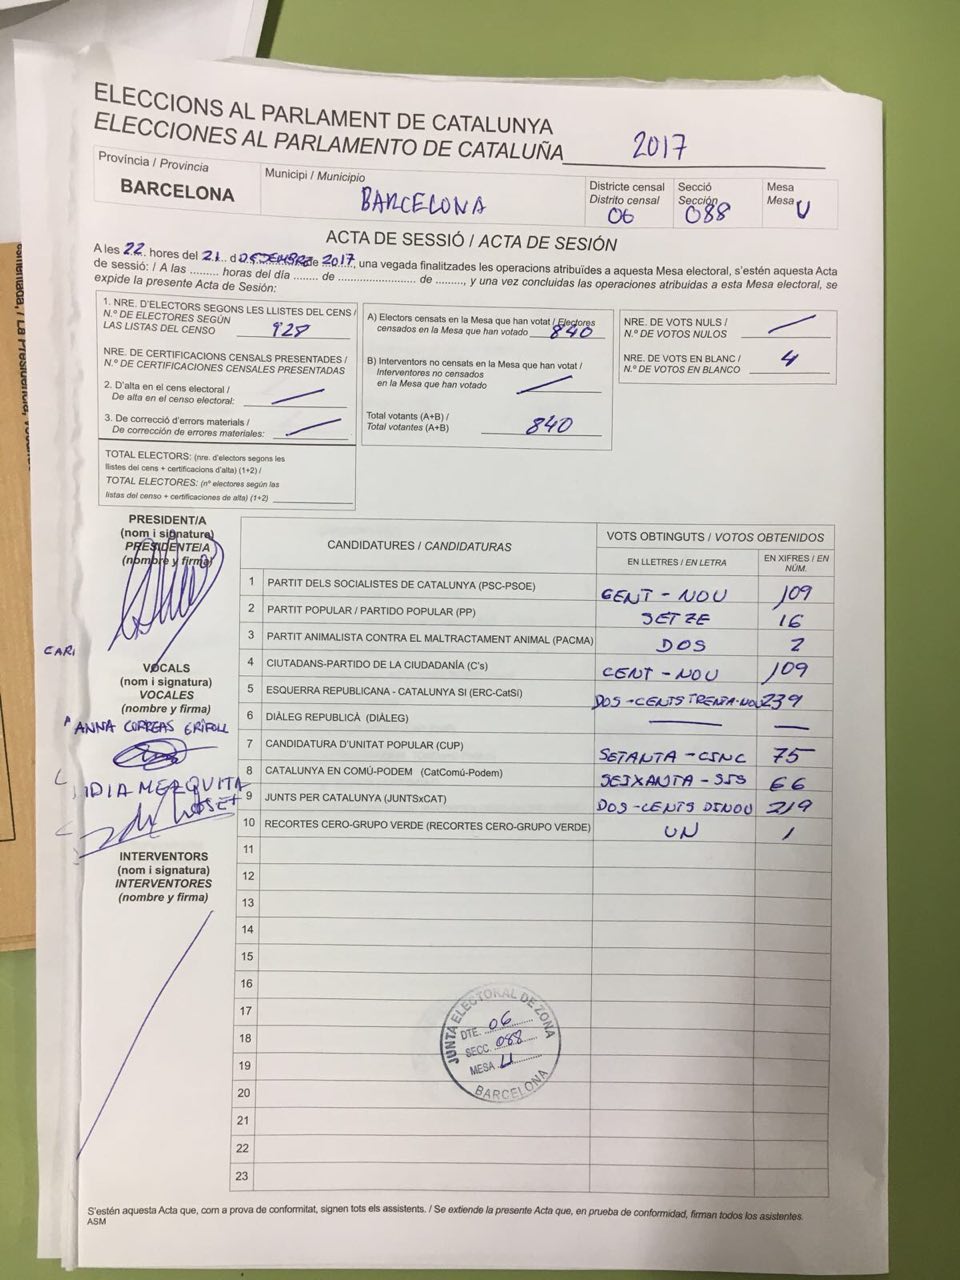 ELECCIONS AL PARLAMENT DE CATALUNYA
ELECCIONES AL PARLAMENTO DE CATALUÑA 2017
Província / Provincia
BARCELONA
Municipi / Municipio
BARCELONA
Districte censal
Distrito censal
06
Secció
Sección
088
Mesa
Mesa U
ACTA DE SESSIÓ / ACTA DE SESIÓN
A les 22 hores del 21 d DESEMBRE de 2017, una vegada finalitzades les operacions atribuïdes a aquesta Mesa electoral, s'estén aquesta Acta
de sessió: / A las ......... horas del día ........ de ........................ de ........, y una vez concluidas las operaciones atribuidas a esta Mesa electoral, se
expide la presente Acta de Sesión:
1. NRE. D'ELECTORS SEGONS LES LLISTES DEL CENS /
N.º DE ELECTORES SEGÚN
LAS LISTAS DEL CENSO 928
NRE. DE CERTIFICACIONS CENSALS PRESENTADES /
N.º DE CERTIFICACIONES CENSALES PRESENTADAS
2. D'alta en el cens electoral /
De alta en el censo electoral:
3. De correcció d'errors materials /
De corrección de errores materiales:
TOTAL ELECTORS: (nre. d'electors segons les
llistes del cens + certificacions d'alta) (1+2) /
TOTAL ELECTORES: (nº electores según las
listas del censo + certificaciones de alta) (1+2)
A) Electors censats en la Mesa que han votat / Electores
censados en la Mesa que han votado 840
B) Interventors no censats en la Mesa que han votat /
Interventores no censados
en la Mesa que han votado
Total votants (A+B) /
Total votantes (A+B) 840
NRE. DE VOTS NULS /
N.º DE VOTOS NULOS
NRE. DE VOTS EN BLANC /
N.º DE VOTOS EN BLANCO 4
PRESIDENT/A
(nom i signatura)
PRESIDENTE/A
(nombre y firma)
VOCALS
(nom i signatura)
VOCALES
(nombre y firma)
ANNA CORREAS GRIFOLL
LIDIA MEZQUITA
INTERVENTORS
(nom i signatura)
INTERVENTORES
(nombre y firma)
CANDIDATURES / CANDIDATURAS
VOTS OBTINGUTS / VOTOS OBTENIDOS
EN LLETRES / EN LETRA
EN XIFRES / EN
NÚM.
1 PARTIT DELS SOCIALISTES DE CATALUNYA (PSC-PSOE) CENT - NOU 109
2 PARTIT POPULAR / PARTIDO POPULAR (PP) SETZE 16
3 PARTIT ANIMALISTA CONTRA EL MALTRACTAMENT ANIMAL (PACMA) DOS 2
4 CIUTADANS-PARTIDO DE LA CIUDADANÍA (C's) CENT - NOU 109
5 ESQUERRA REPUBLICANA - CATALUNYA SI (ERC-CatSí) DOS-CENTS TRENTA-NOU 239
6 DIÀLEG REPUBLICÀ (DIÀLEG)
7 CANDIDATURA D'UNITAT POPULAR (CUP) SETANTA - CINC 75
8 CATALUNYA EN COMÚ-PODEM (CatComú-Podem) SEIXANTA - SIS 66
9 JUNTS PER CATALUNYA (JUNTSxCAT) DOS-CENTS DINOU 219
10 RECORTES CERO-GRUPO VERDE (RECORTES CERO-GRUPO VERDE) UN 1
11
12
13
14
15
16
17
18
19
20
21
22
23
JUNTA ELECTORAL DE ZONA
DTE. 06
SECC. 088
MESA U
BARCELONA
S'estén aquesta Acta que, com a prova de conformitat, signen tots els assistents. / Se extiende la presente Acta que, en prueba de conformidad, firman todos los asistentes.
ASM